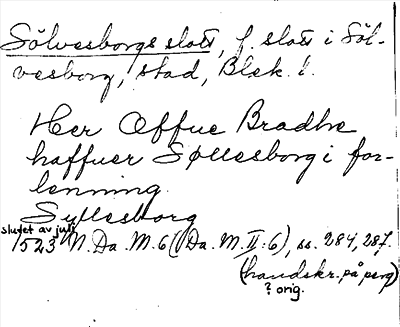 Sölvesborgs slott, f. slott i Söl-
vesborg, stad, Blek. l.
Her Offue Bradhe
haffuer Søllesborg i for-
lenning.
Syllesborg
slutet av juli
1523 N. Da. M. 6 (Da. M. II:6), ss. 284, 287.
(handskr. på perg)
? orig.